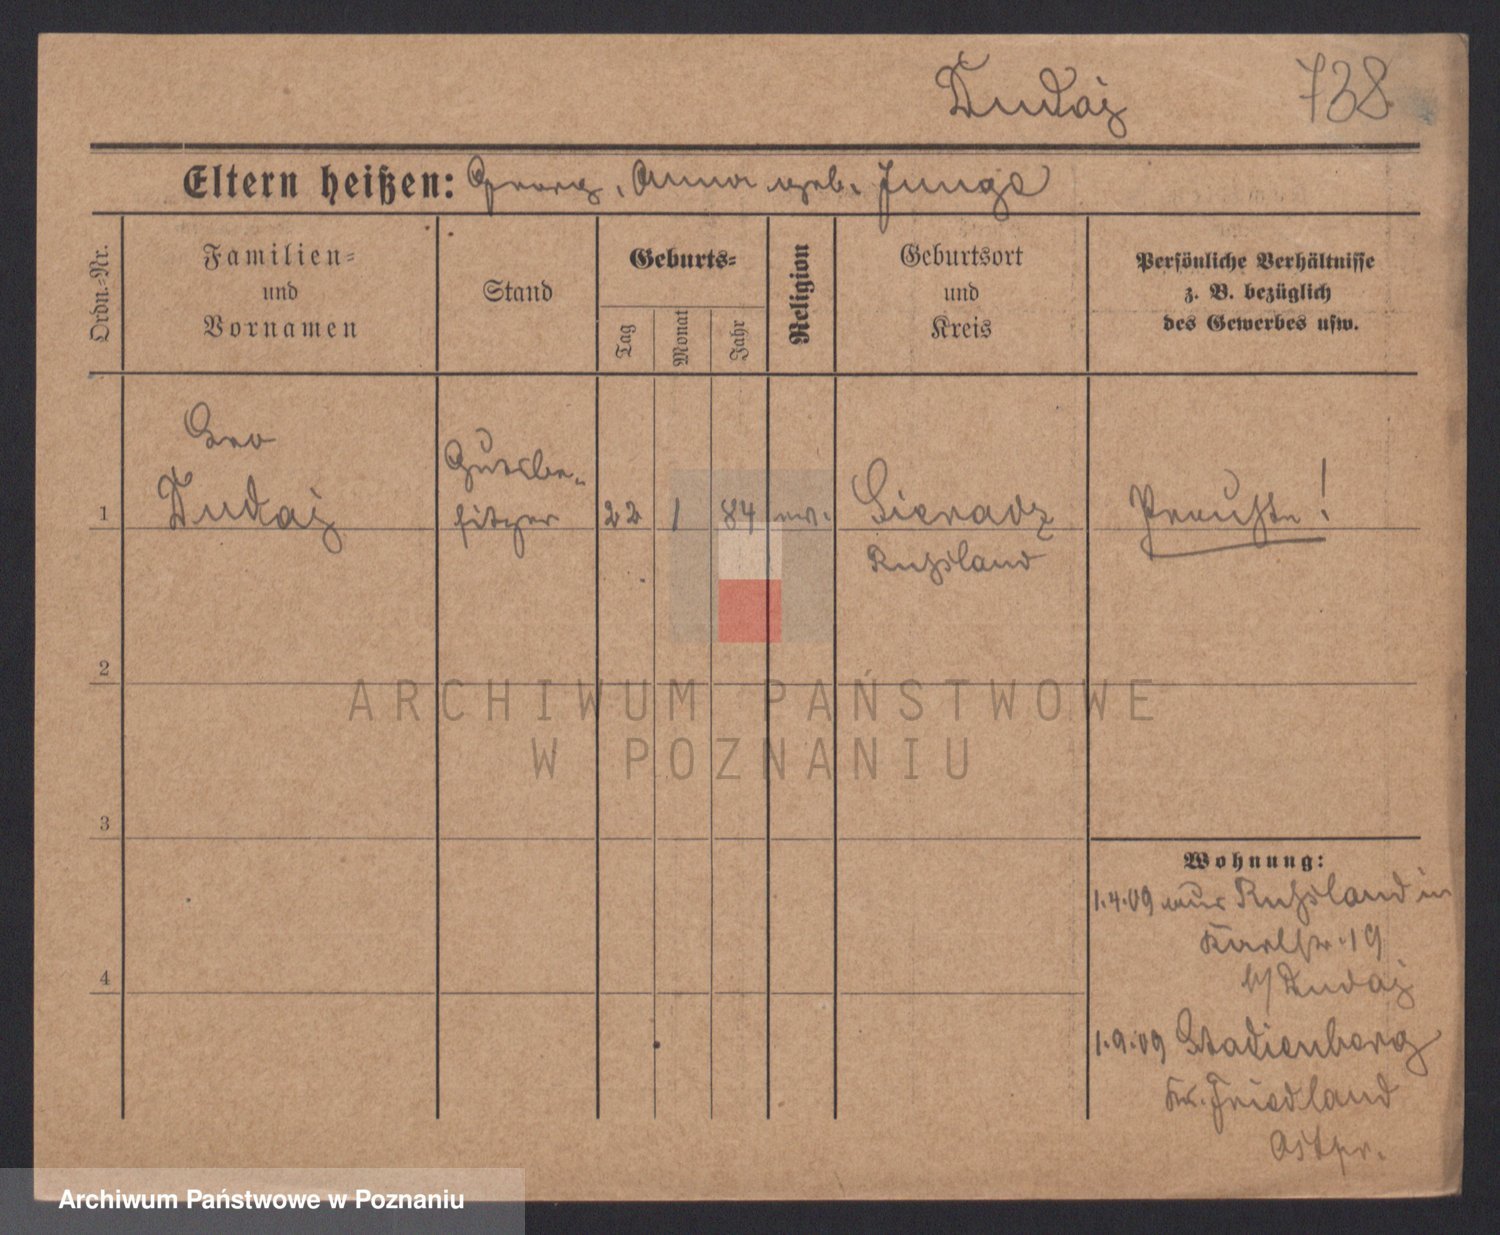 Dudaj 738
Eltern heißen: Georg, Anna geb. Junga
Ordn.-Nr.
Familien-
und
Vornamen
Stand
Geburts-
Tag
Monat
Jahr
Religion
Geburtsort
und
Kreis
Persönliche Verhältnisse
z. B. bezüglich
des Gewerbes usw.
Leo
Gutsbe-
1 Dudaj sitzer 22 1 84 ev. Sieradz Preuße!
Rußland
2
ARCHIWUM PAŃSTWOWE
W POZNANIU
3
Wohnung:
1.4.09 aus Rußland in
Karlstr. 19
b/ Dudaj
4
1.9.09 Stadienberg
Kr. Friedland
Ostpr.
Archiwum Państwowe w Poznaniu